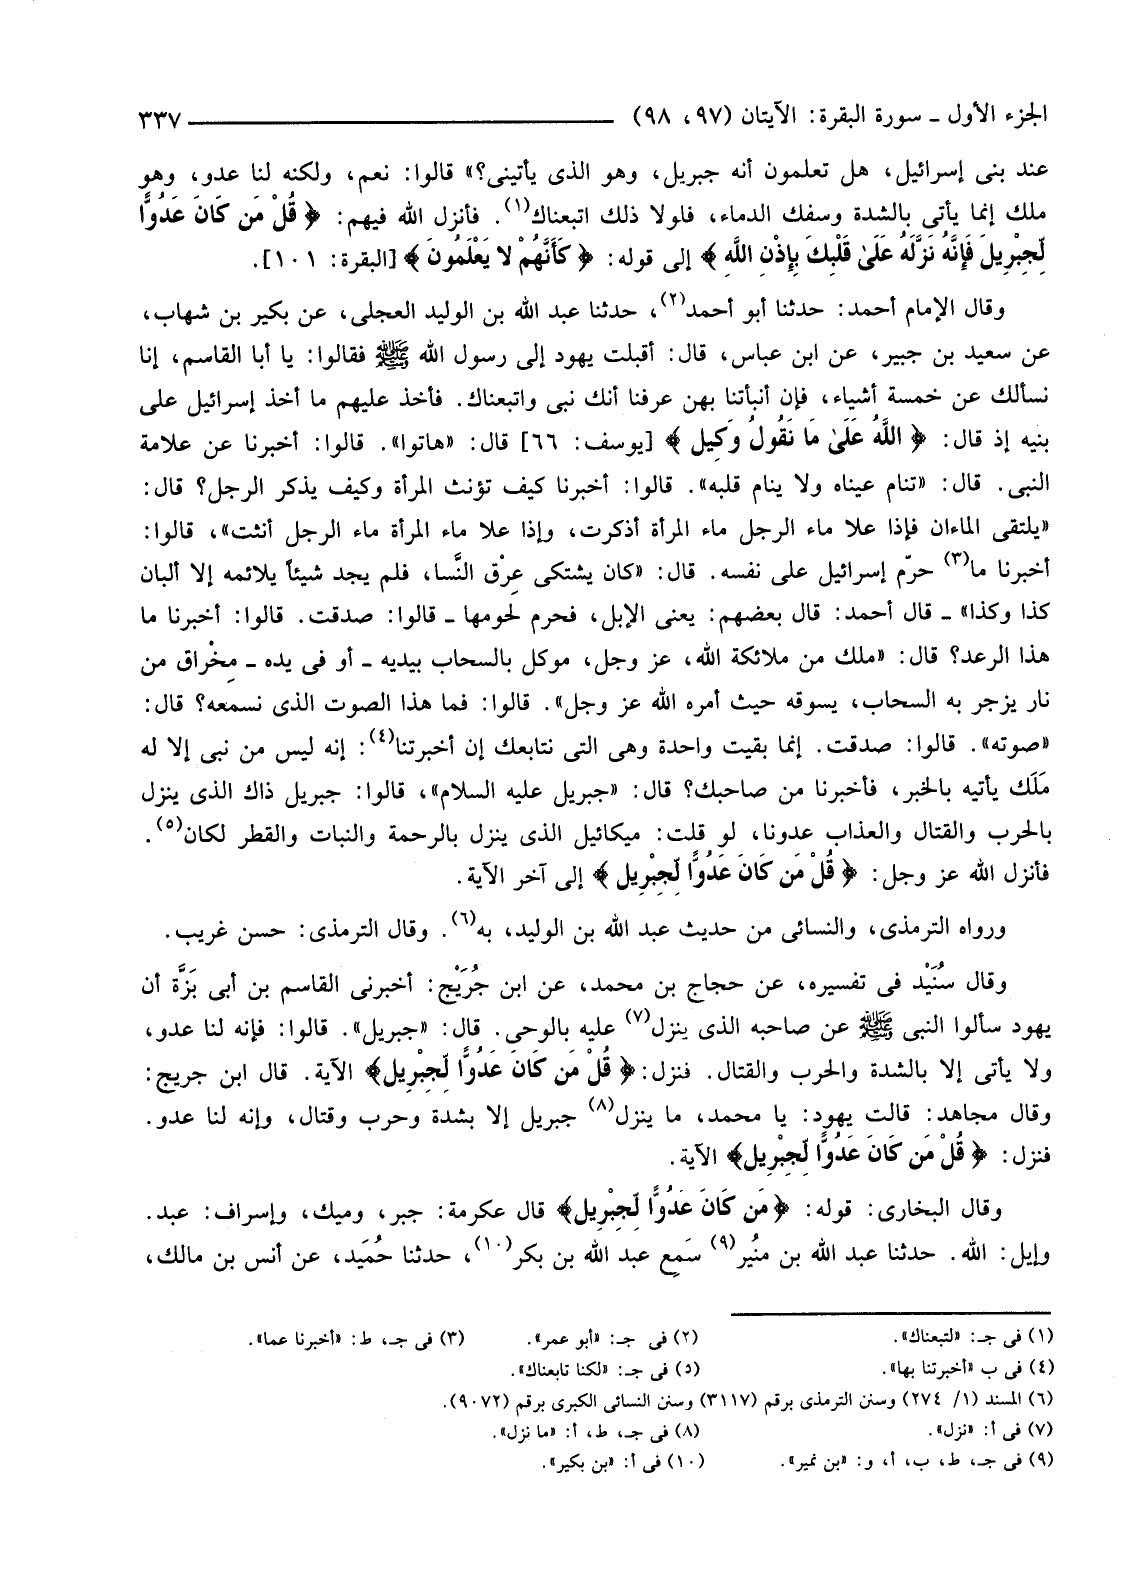 الجزء الأول ـ سورة البقرة: الآيتان (٩٧، ٩٨) ٣٣٧
عند بنى إسرائيل، هل تعلمون أنه جبريل، وهو الذى يأتينى؟» قالوا: نعم، ولكنه لنا عدو، وهو
ملك إنما يأتى بالشدة وسفك الدماء، فلولا ذلك اتبعناك(١). فأنزل الله فيهم: ﴿ قُلْ مَن كَانَ عَدُوًّا
لِّجِبْرِيلَ فَإِنَّهُ نَزَّلَهُ عَلَىٰ قَلْبِكَ بِإِذْنِ اللَّهِ ﴾ إلى قوله: ﴿ كَأَنَّهُمْ لا يَعْلَمُونَ ﴾ [البقرة: ١٠١].
وقال الإمام أحمد: حدثنا أبو أحمد(٢)، حدثنا عبد الله بن الوليد العجلى، عن بكير بن شهاب،
عن سعيد بن جبير، عن ابن عباس، قال: أقبلت يهود إلى رسول الله ﷺ فقالوا: يا أبا القاسم، إنا
نسألك عن خمسة أشياء، فإن أنبأتنا بهن عرفنا أنك نبى واتبعناك. فأخذ عليهم ما أخذ إسرائيل على
بنيه إذ قال: ﴿ اللَّهُ عَلَىٰ مَا نَقُولُ وَكِيل ﴾ [يوسف: ٦٦] قال: «هاتوا». قالوا: أخبرنا عن علامة
النبى. قال: «تنام عيناه ولا ينام قلبه». قالوا: أخبرنا كيف تؤنث المرأة وكيف يذكر الرجل؟ قال:
«يلتقى الماءان فإذا علا ماء الرجل ماء المرأة أذكرت، وإذا علا ماء المرأة ماء الرجل أنثت»، قالوا:
أخبرنا ما(٣) حرّم إسرائيل على نفسه. قال: «كان يشتكى عِرْق النَّسا، فلم يجد شيئاً يلائمه إلا ألبان
كذا وكذا» ـ قال أحمد: قال بعضهم: يعنى الإبل، فحرم لحومها ـ قالوا: صدقت. قالوا: أخبرنا ما
هذا الرعد؟ قال: «ملك من ملائكة الله، عز وجل، موكل بالسحاب بيديه ـ أو فى يده ـ مِخْراق من
نار يزجر به السحاب، يسوقه حيث أمره الله عز وجل». قالوا: فما هذا الصوت الذى نسمعه؟ قال:
«صوته». قالوا: صدقت. إنما بقيت واحدة وهى التى نتابعك إن أخبرتنا(٤): إنه ليس من نبى إلا له
مَلَك يأتيه بالخبر، فأخبرنا من صاحبك؟ قال: «جبريل عليه السلام»، قالوا: جبريل ذاك الذى ينزل
بالحرب والقتال والعذاب عدونا، لو قلت: ميكائيل الذى ينزل بالرحمة والنبات والقطر لكان(٥).
فأنزل الله عز وجل: ﴿ قُلْ مَن كَانَ عَدُوًّا لِّجِبْرِيل ﴾ إلى آخر الآية.
ورواه الترمذى، والنسائى من حديث عبد الله بن الوليد، به(٦). وقال الترمذى: حسن غريب.
وقال سُنَيْد فى تفسيره، عن حجاج بن محمد، عن ابن جُرَيْج: أخبرنى القاسم بن أبى بَزَّة أن
يهود سألوا النبى ﷺ عن صاحبه الذى ينزل(٧) عليه بالوحى. قال: «جبريل». قالوا: فإنه لنا عدو،
ولا يأتى إلا بالشدة والحرب والقتال. فنزل: ﴿ قُلْ مَن كَانَ عَدُوًّا لِّجِبْرِيل﴾ الآية. قال ابن جريج:
وقال مجاهد: قالت يهود: يا محمد، ما ينزل(٨) جبريل إلا بشدة وحرب وقتال، وإنه لنا عدو.
فنزل: ﴿ قُلْ مَن كَانَ عَدُوًّا لِّجِبْرِيل﴾ الآية.
وقال البخارى: قوله: ﴿مَن كَانَ عَدُوًّا لِّجِبْرِيل﴾ قال عكرمة: جبر، وميك، وإسراف: عبد.
وإيل: الله. حدثنا عبد الله بن منُير(٩) سَمِع عبد الله بن بكر(١٠)، حدثنا حُمَيد، عن أنس بن مالك،
(١) فى جـ: «لتبعناك». (٢) فى جـ: «أبو عمر». (٣) فى جـ، ط: «أخبرنا عما».
(٤) فى ب «أخبرتنا بها». (٥) فى جـ: «لكنا تابعناك».
(٦) المسند (١/ ٢٧٤) وسنن الترمذى برقم (٣١١٧) وسنن النسائى الكبرى برقم (٩٠٧٢).
(٧) فى أ: «نزل». (٨) فى جـ، ط، أ: «ما نزل».
(٩) فى جـ، ط، ب، أ، و: «بن نمير». (١٠) فى أ: «بن بكير».